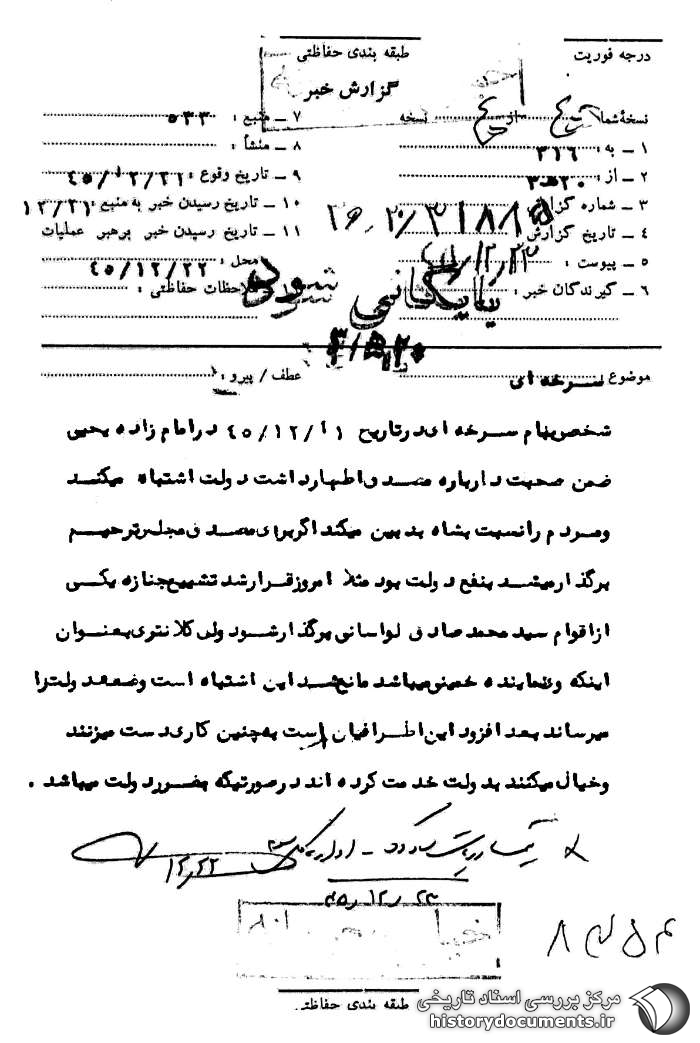 درجه فوریت
طبقه بندی حفاظتی
گزارش خبر
نسخهٔ شماره از نسخه
۱ ـ به : ۳۱۶
۲ ـ از : ۲۰ه۳
۳ ـ شماره گزارش
۴ ـ تاریخ گزارش
۵ ـ پیوست :
۶ ـ گیرندگان خبر :
۷ ـ منبع : ۵۳۳
۸ ـ منشأ :
۹ ـ تاریخ وقوع : ۴۵/۱۲/۲۱
۱۰ ـ تاریخ رسیدن خبر به منبع : ۱۲/۲۱
۱۱ ـ تاریخ رسیدن خبر برهبر عملیات
محل : ۴۵/۱۲/۲۲
ملاحظات حفاظتی :
بایگانی شود
موضوع سرخه ای
عطف / پیرو :
شخصی بنام سرخه ای در تاریخ ۴۵/۱۲/۲۱ در امام زاده یحیی
ضمن صحبت درباره مصدق اظهار داشت دولت اشتباه میکند
ومردم را نسبت بشاه بدبین میکند اگر برای مصدق مجلس ترحیم
برگذار میشد بنفع دولت بود مثلا امروز قرار شد تشییع جنازه یکی
از اقوام سید محمد صادق لواسانی برگذار شود ولی کلانتری بعنوان
اینکه وی نماینده خمینی میباشد مانع شد این اشتباه است وضعف دولت را
میرساند بعد افزود این اطرافیان است به چنین کاری دست میزنند
وخیال میکنند بدولت خدمت کرده اند در صورتیکه بضرر دولت میباشد .
۱۲/۲۲
۴۵/۱۲/۲۳
طبقه بندی حفاظتی
مرکز بررسی اسناد تاریخی
historydocuments.ir